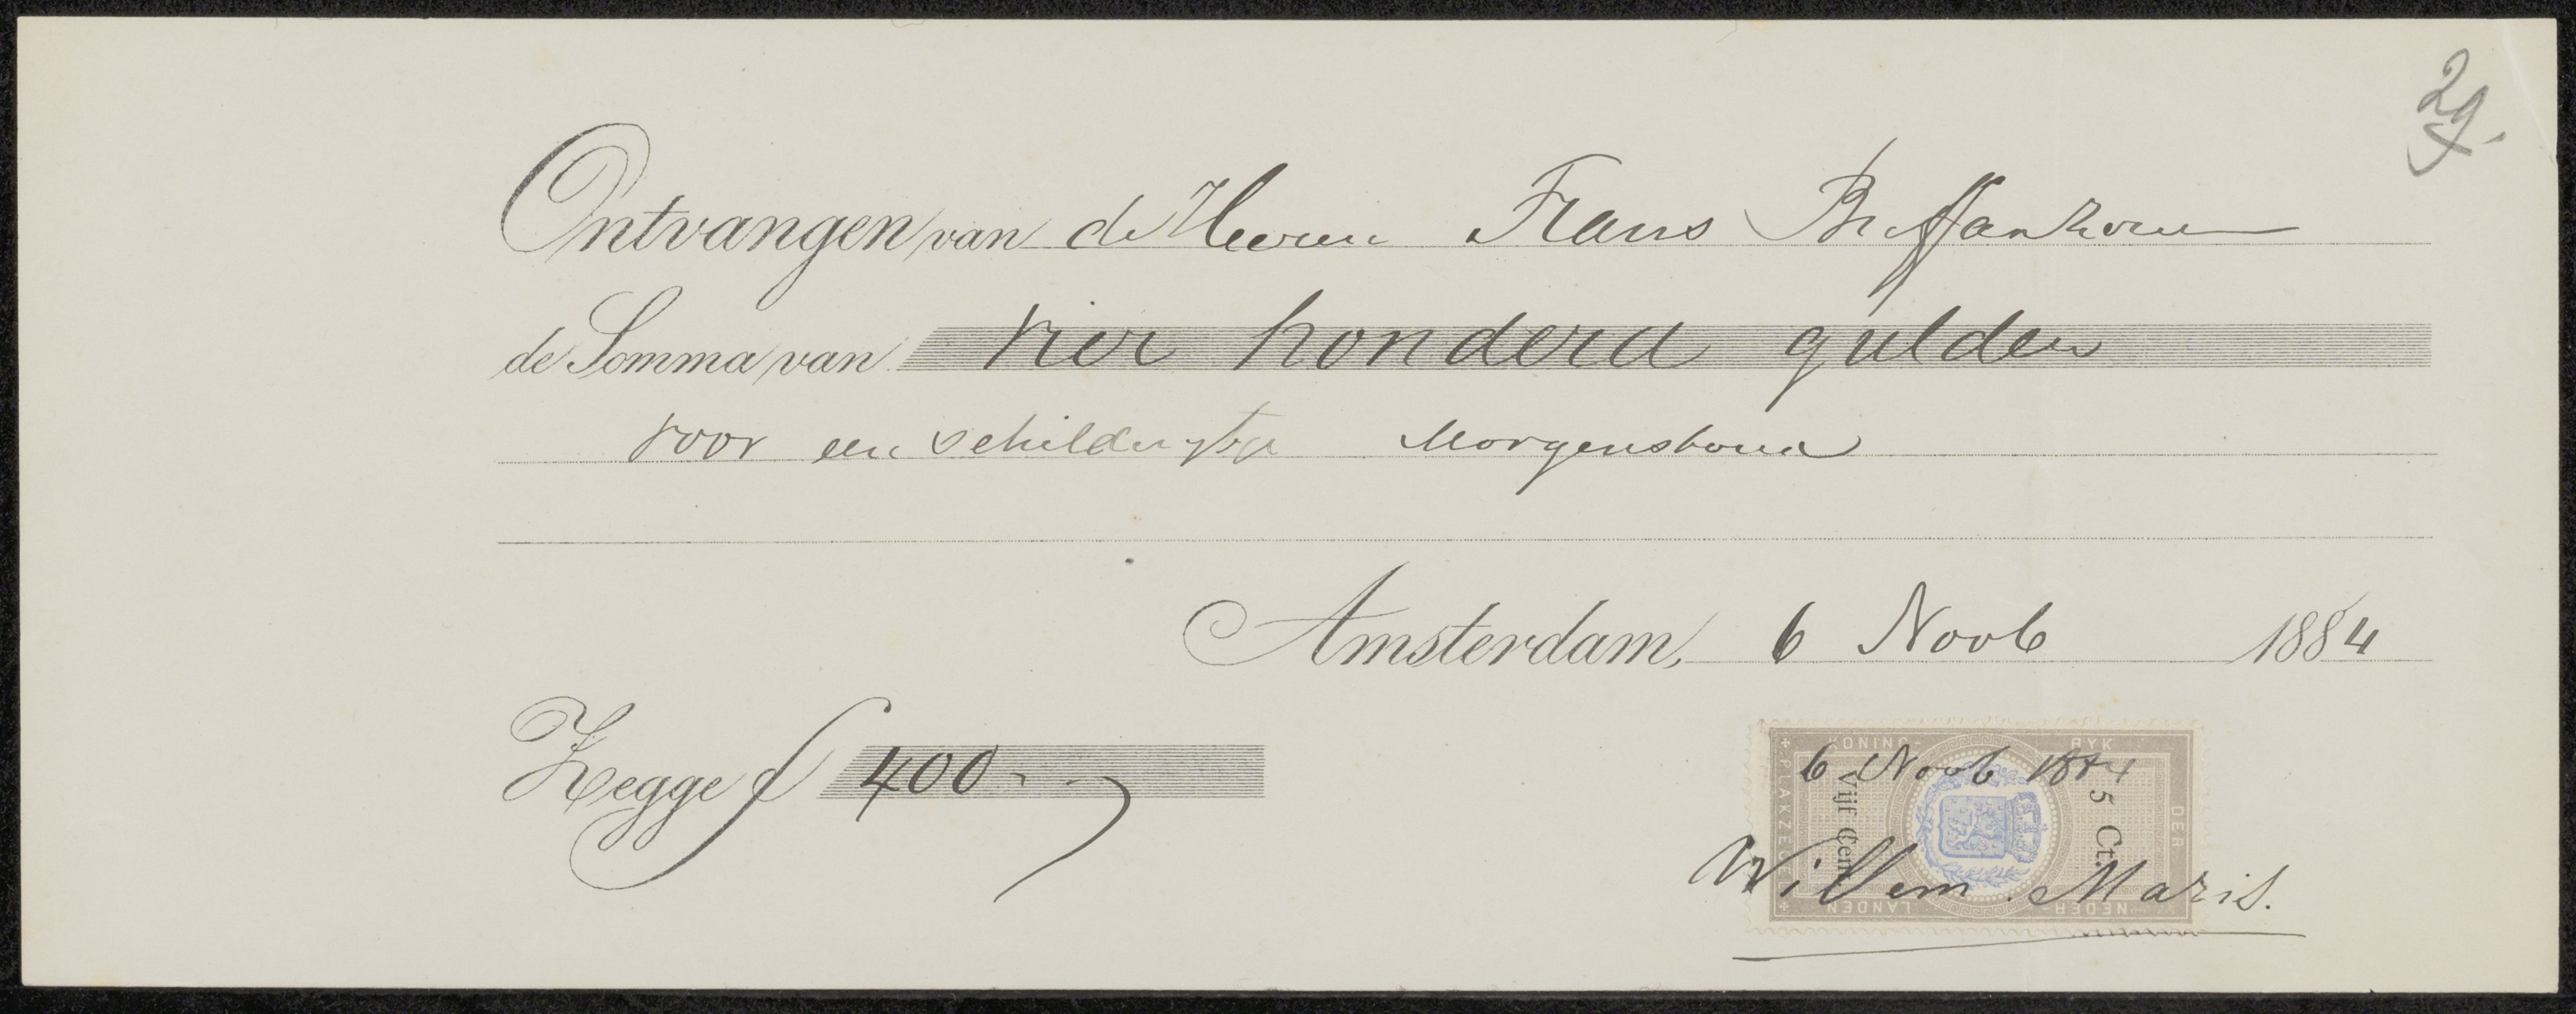 29.
Ontvangen van de Heeren Frans Buffa en Zonen
de Somma van vier honderd gulden
voor een schilderytje Morgenstond
Amsterdam, 6 Novb 1884
Zegge f 400 - - -
KONING- RYK DER NEDER- LANDEN
PLAKZEGEL
Vijf Cent 5 Ct.
6 Novb 1884
Willem Maris.